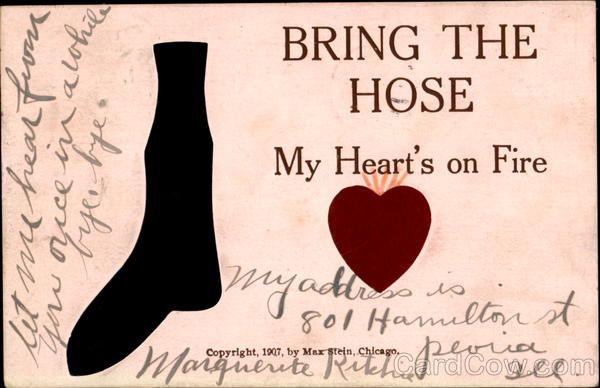 let me hear from
you once in a while
bye-bye.
BRING THE
HOSE
My Heart's on Fire
My address is
801 Hamilton st
Peoria
Ill
Copyright, 1907, by Max Stein, Chicago.
Marguerite
CardCow.com